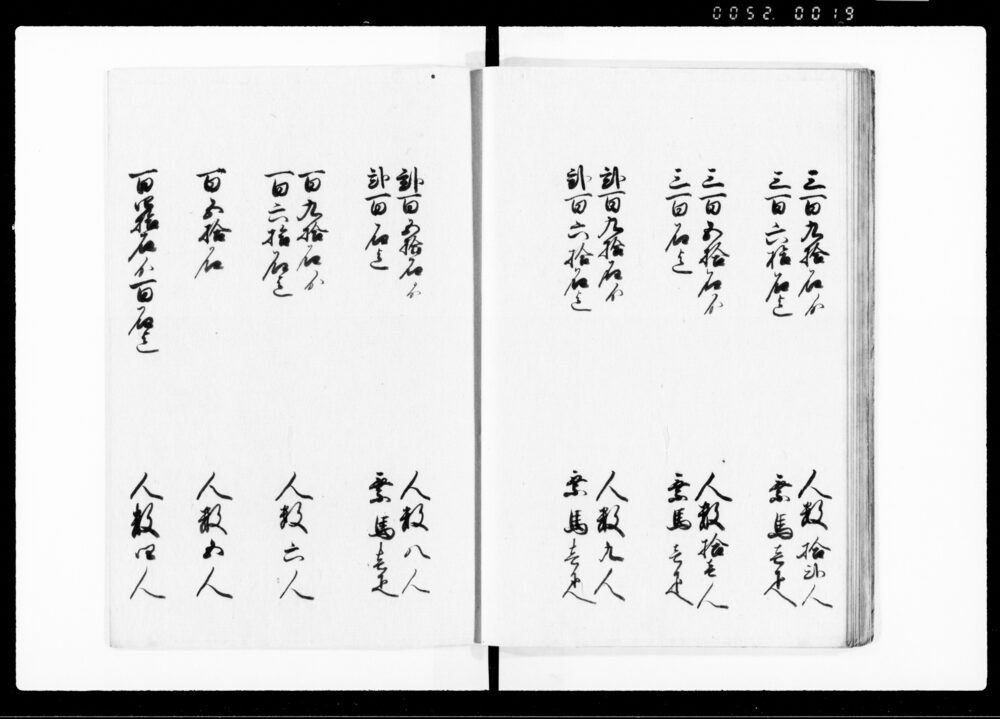 0052. 0019
三百九拾石ゟ
三百六拾石迄
人数拾弐人
乗馬壱疋
三百五拾石ゟ
三百石迄
人数拾壱人
乗馬壱疋
弐百九拾石ゟ
弐百六拾石迄
人数九人
乗馬壱疋
弐百五拾石ゟ
弐百石迄
人数八人
乗馬壱疋
百九拾石ゟ
百六拾石迄
人数六人
百五拾石
人数五人
百四拾石ゟ百石迄
人数四人